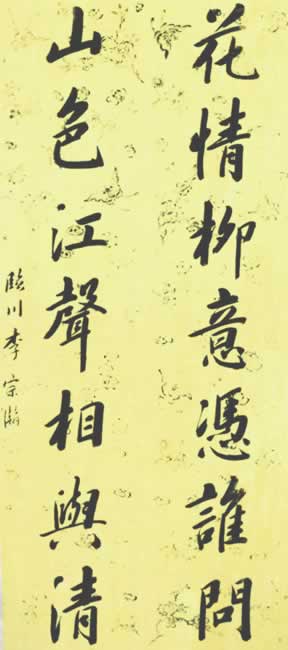 花情柳意憑誰問
山色江聲相與清
臨川李宗瀚